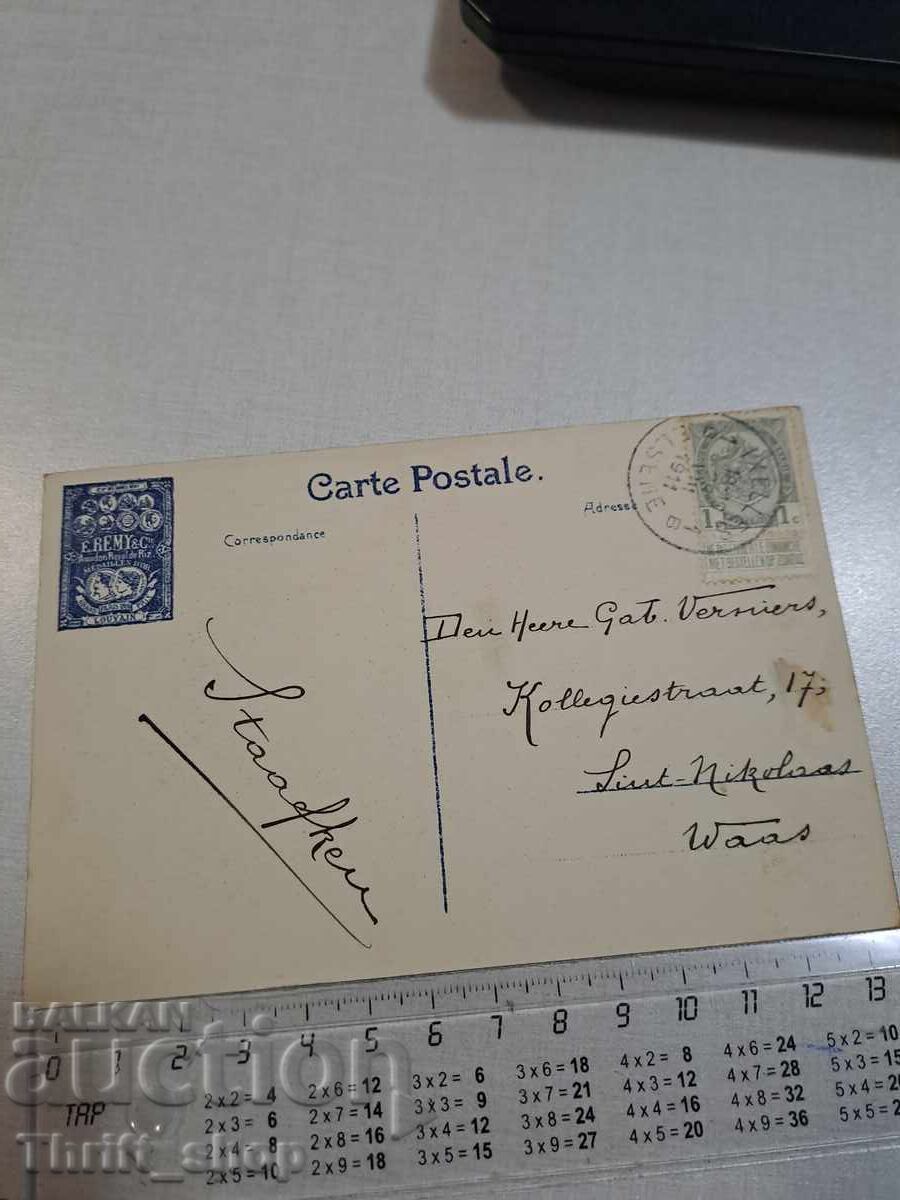 Carte Postale.
Correspondance
Adresse
E. REMY & Cie
Amidon Royal de Riz
MEDAILLES D'OR
LOUVAIN
1911
1c 1c
NIET BESTELLEN OP ZONDAG
Den Heere Gab. Versniers,
Kollegiestraat, 17,
Sint-Nikolaas
Waas
Staafken
0 1 2 3 4 5 6 7 8 9 10 11 12 13
TAP
2 x 2 = 4
2 x 3 = 6
2 x 4 = 8
2 x 5 = 10
2 x 6 = 12
2 x 7 = 14
2 x 8 = 16
2 x 9 = 18
3 x 2 = 6
3 x 3 = 9
3 x 4 = 12
3 x 5 = 15
3 x 6 = 18
3 x 7 = 21
3 x 8 = 24
3 x 9 = 27
4 x 2 = 8
4 x 3 = 12
4 x 4 = 16
4 x 5 = 20
4 x 6 = 24
4 x 7 = 28
4 x 8 = 32
4 x 9 = 36
5 x 2 = 10
5 x 3 = 15
5 x 4 = 2
5 x 5 = 2
BALKAN
auction
Thrift_shop